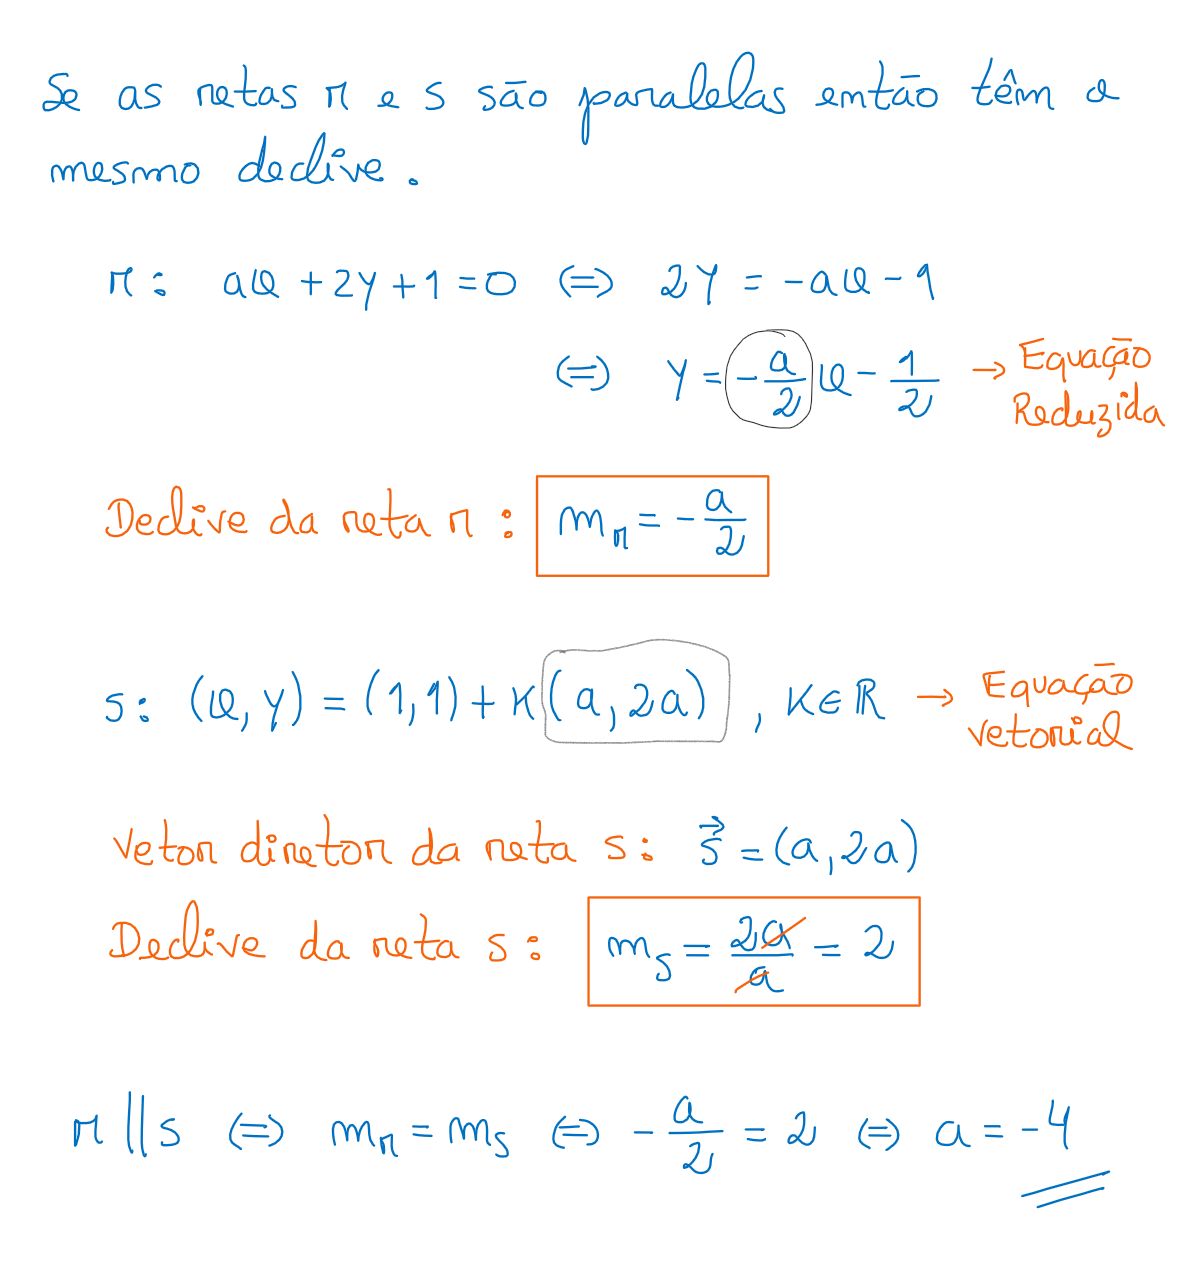 Se as retas r e s são paralelas então têm o
mesmo declive.
r: ax + 2y + 1 = 0 ⇔ 2y = -ax - 1
⇔ y = -a/2 x - 1/2 → Equação
Reduzida
Declive da reta r: m_r = -a/2
s: (x, y) = (1, 1) + k(a, 2a), k ∈ ℝ → Equação
Vetorial
Vetor diretor da reta s: s⃗ = (a, 2a)
Declive da reta s: m_s = 2a/a = 2
r || s ⇔ m_r = m_s ⇔ -a/2 = 2 ⇔ a = -4